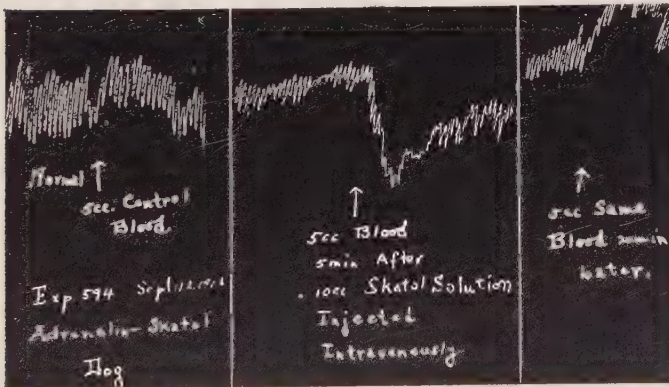 Normal
5cc. Control
Blood.
Exp 594 Sept 12
Adrenalin-Skatol
Dog
5cc Blood
5min After
10cc Skatol Solution
Injected
Intravenously
5cc Same
Blood min
Later.